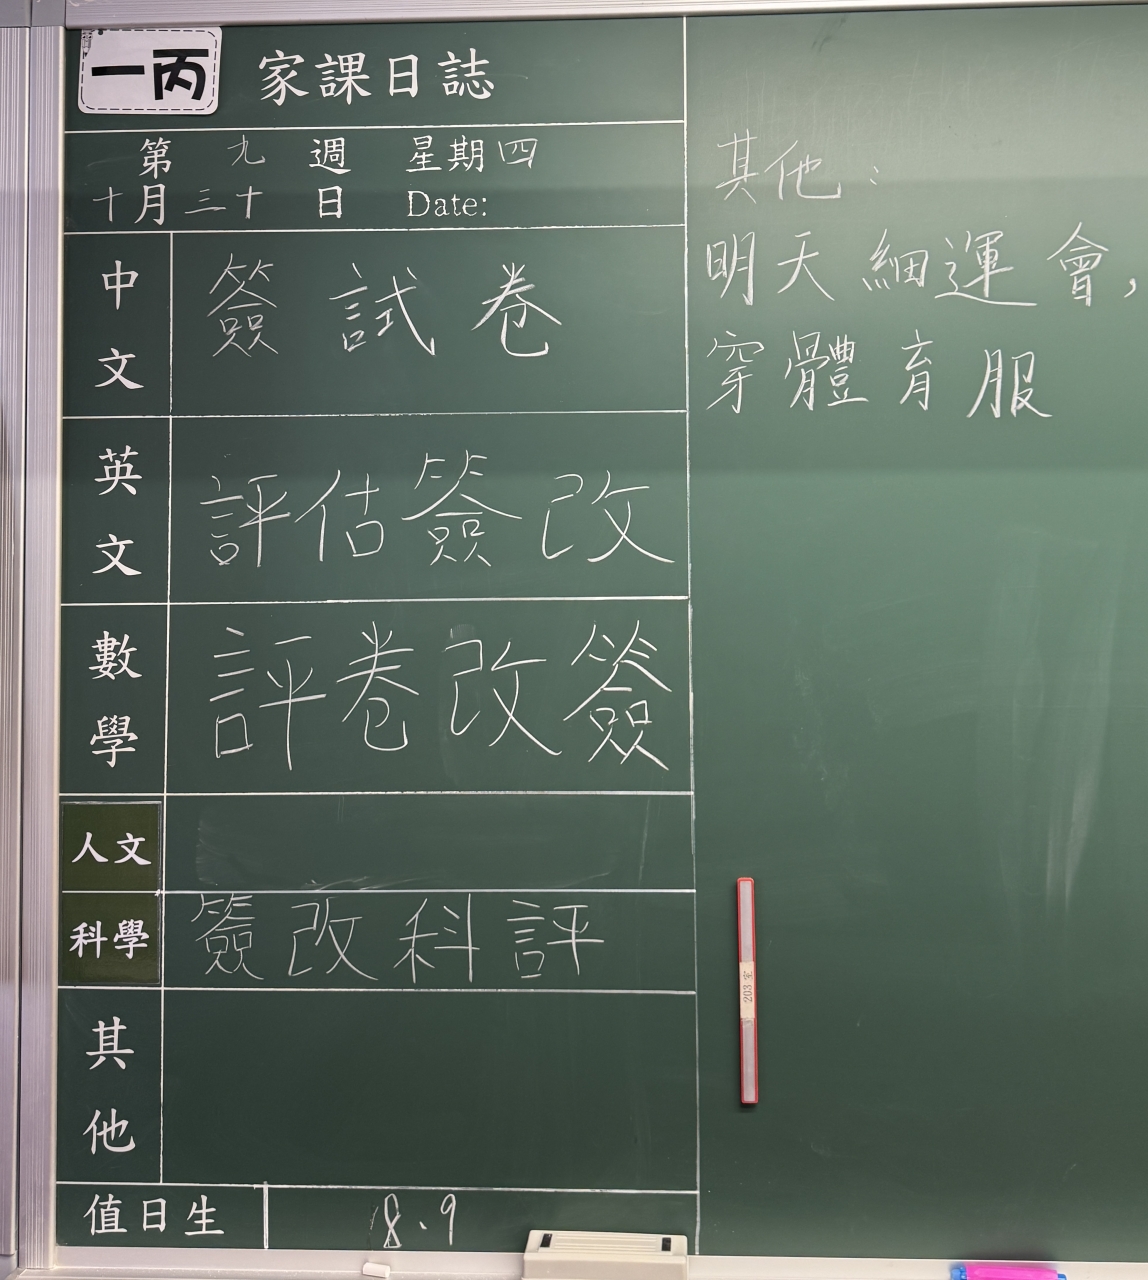 一丙 家課日誌
第 九 週 星期四
十月三十 日 Date:
中文 簽試卷
英文 評估簽改
數學 評卷改簽
人文
科學 簽改科評
其他
值日生 8、9
其他：
明天細運會，
穿體育服
203 室